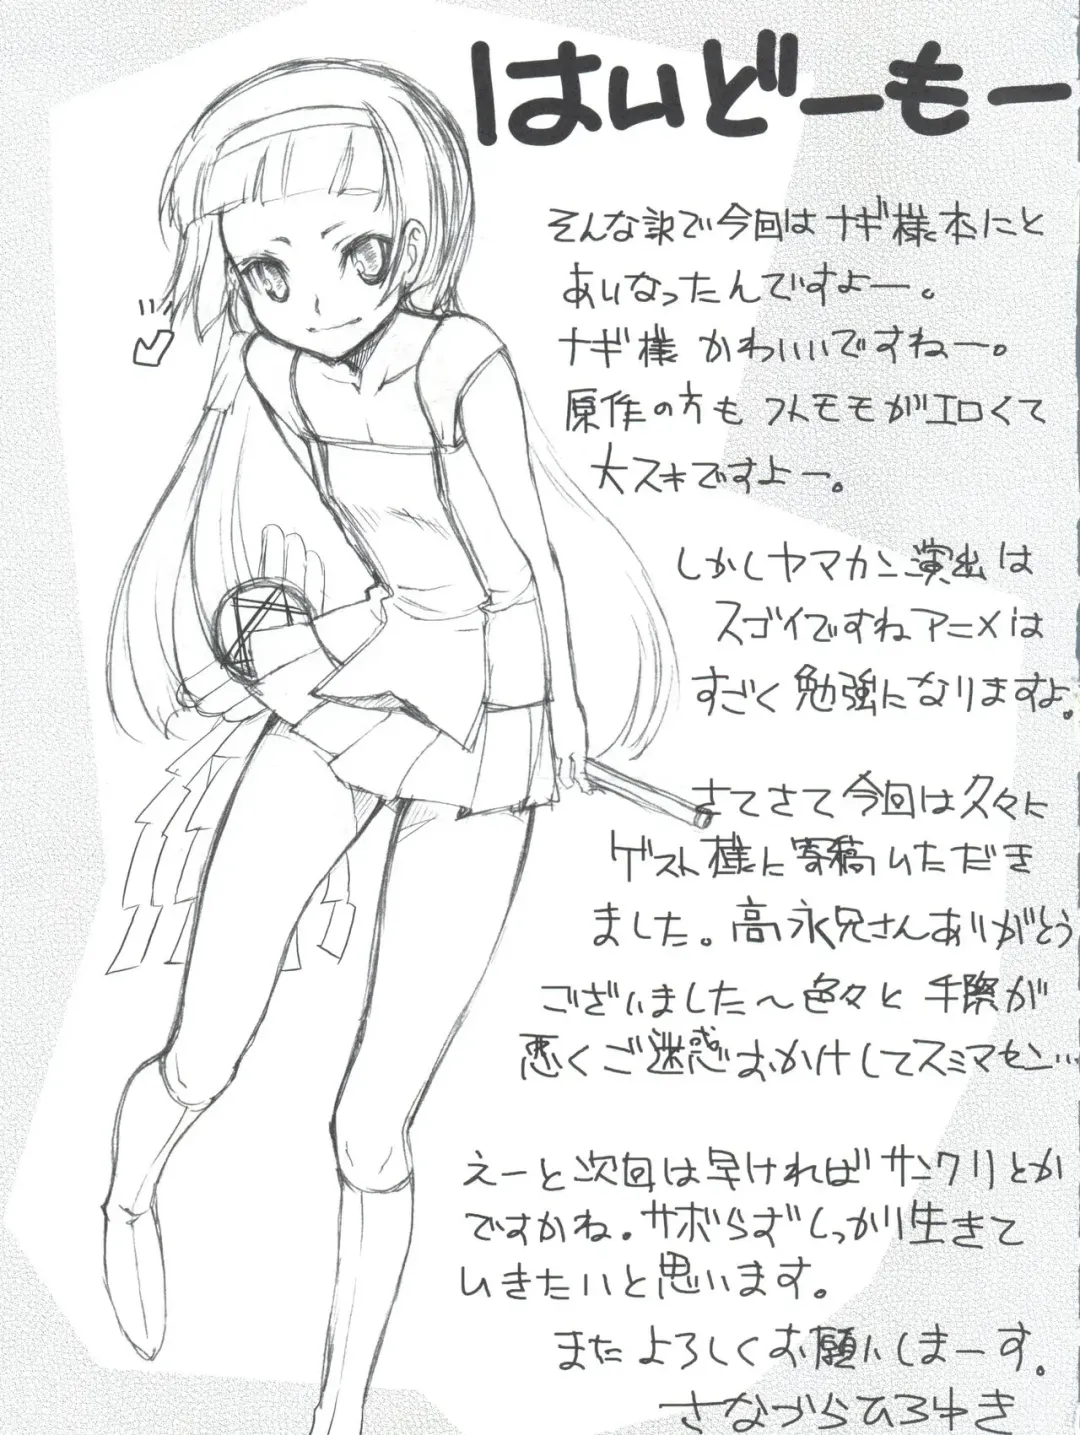 はいどーもー
そんな訳で今回はナギ様本にと
あいなったんですよー。
ナギ様 かわいいですねー。
原作の方も フトモモがエロくて
大スキですよー。
しかしヤマカン演出は
スゴイですねアニメは
すごく勉強になりますよ。
さてさて今回は久々に
ゲスト様に寄稿いただき
ました。高永兄さんありがとう
ございました～色々と 手際が
悪くご迷惑おかけしてスミマセン…
えーと次回は早ければサンクリとか
ですかね。サボらずしっかり生きて
いきたいと思います。
またよろしくお願いしまーす。
さなづらひろゆき